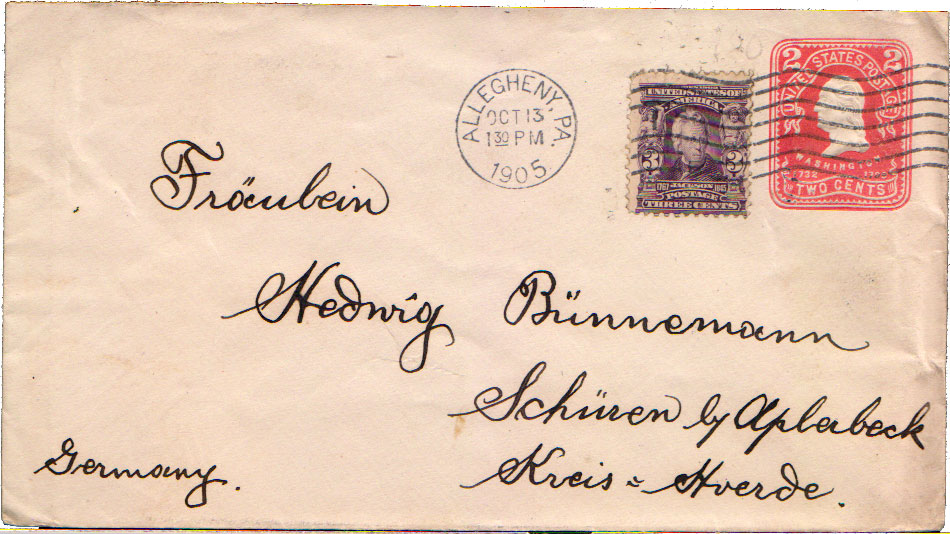 ALLEGHENY, PA.
OCT 13
1 30 PM
1905
UNITED STATES OF
AMERICA
3 3
1767 JACKSON 1845
POSTAGE
THREE CENTS
2 2
UNITED STATES POSTAGE
WASHINGTON
1732
TWO CENTS
Fräulein
Hedwig Bünnemann
Schüren b/ Aplerbeck
Kreis = Hoerde.
Germany.